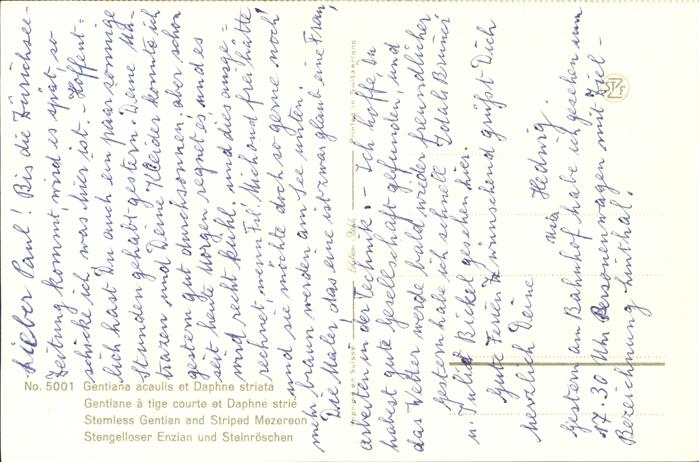 Lieber Paul! Bis die Zürichsee-
Zeitung kommt, wird es spät, so
schicke ich was hier ist. - Hoffent-
lich hast Du auch ein paar sonnige
Stunden gehabt gestern. Deine Ma-
tratzen und Deine Kleider konnte ich
gestern gut durchsonnen, aber schon
seit heute Morgen regnet es und es
wird recht kühl, und dies ausge-
rechnet, wenn Frl. Michoud frei hätte
und sie möchte doch so gerne noch
mehr braun werden am See unten.
Die Maler, das eine ist zwar glaub eine Frau,
arbeiten in der Technik. - Ich hoffe, Du
habest gute Gesellschaft gefunden, und
das Wetter werde bald wieder freundlicher
Gestern habe ich schnell Edel Brunei
u. Julia Bickel gesehen hier.
Gute Ferien Dir wünschend grüsst Dich
herzlich Deine
Hedwig.
Gestern am Bahnhof habe ich gesehen um
17.30 Uhr Personenwagen mit Ziel-
Bezeichnung: Linthal.
No. 5001 Gentiana acaulis et Daphne striata
Gentiane à tige courte et Daphne strié
Stemless Gentian and Striped Mezereon
Stengelloser Enzian und Steinröschen
Imprimé en Suisse
Printed in Switzerland